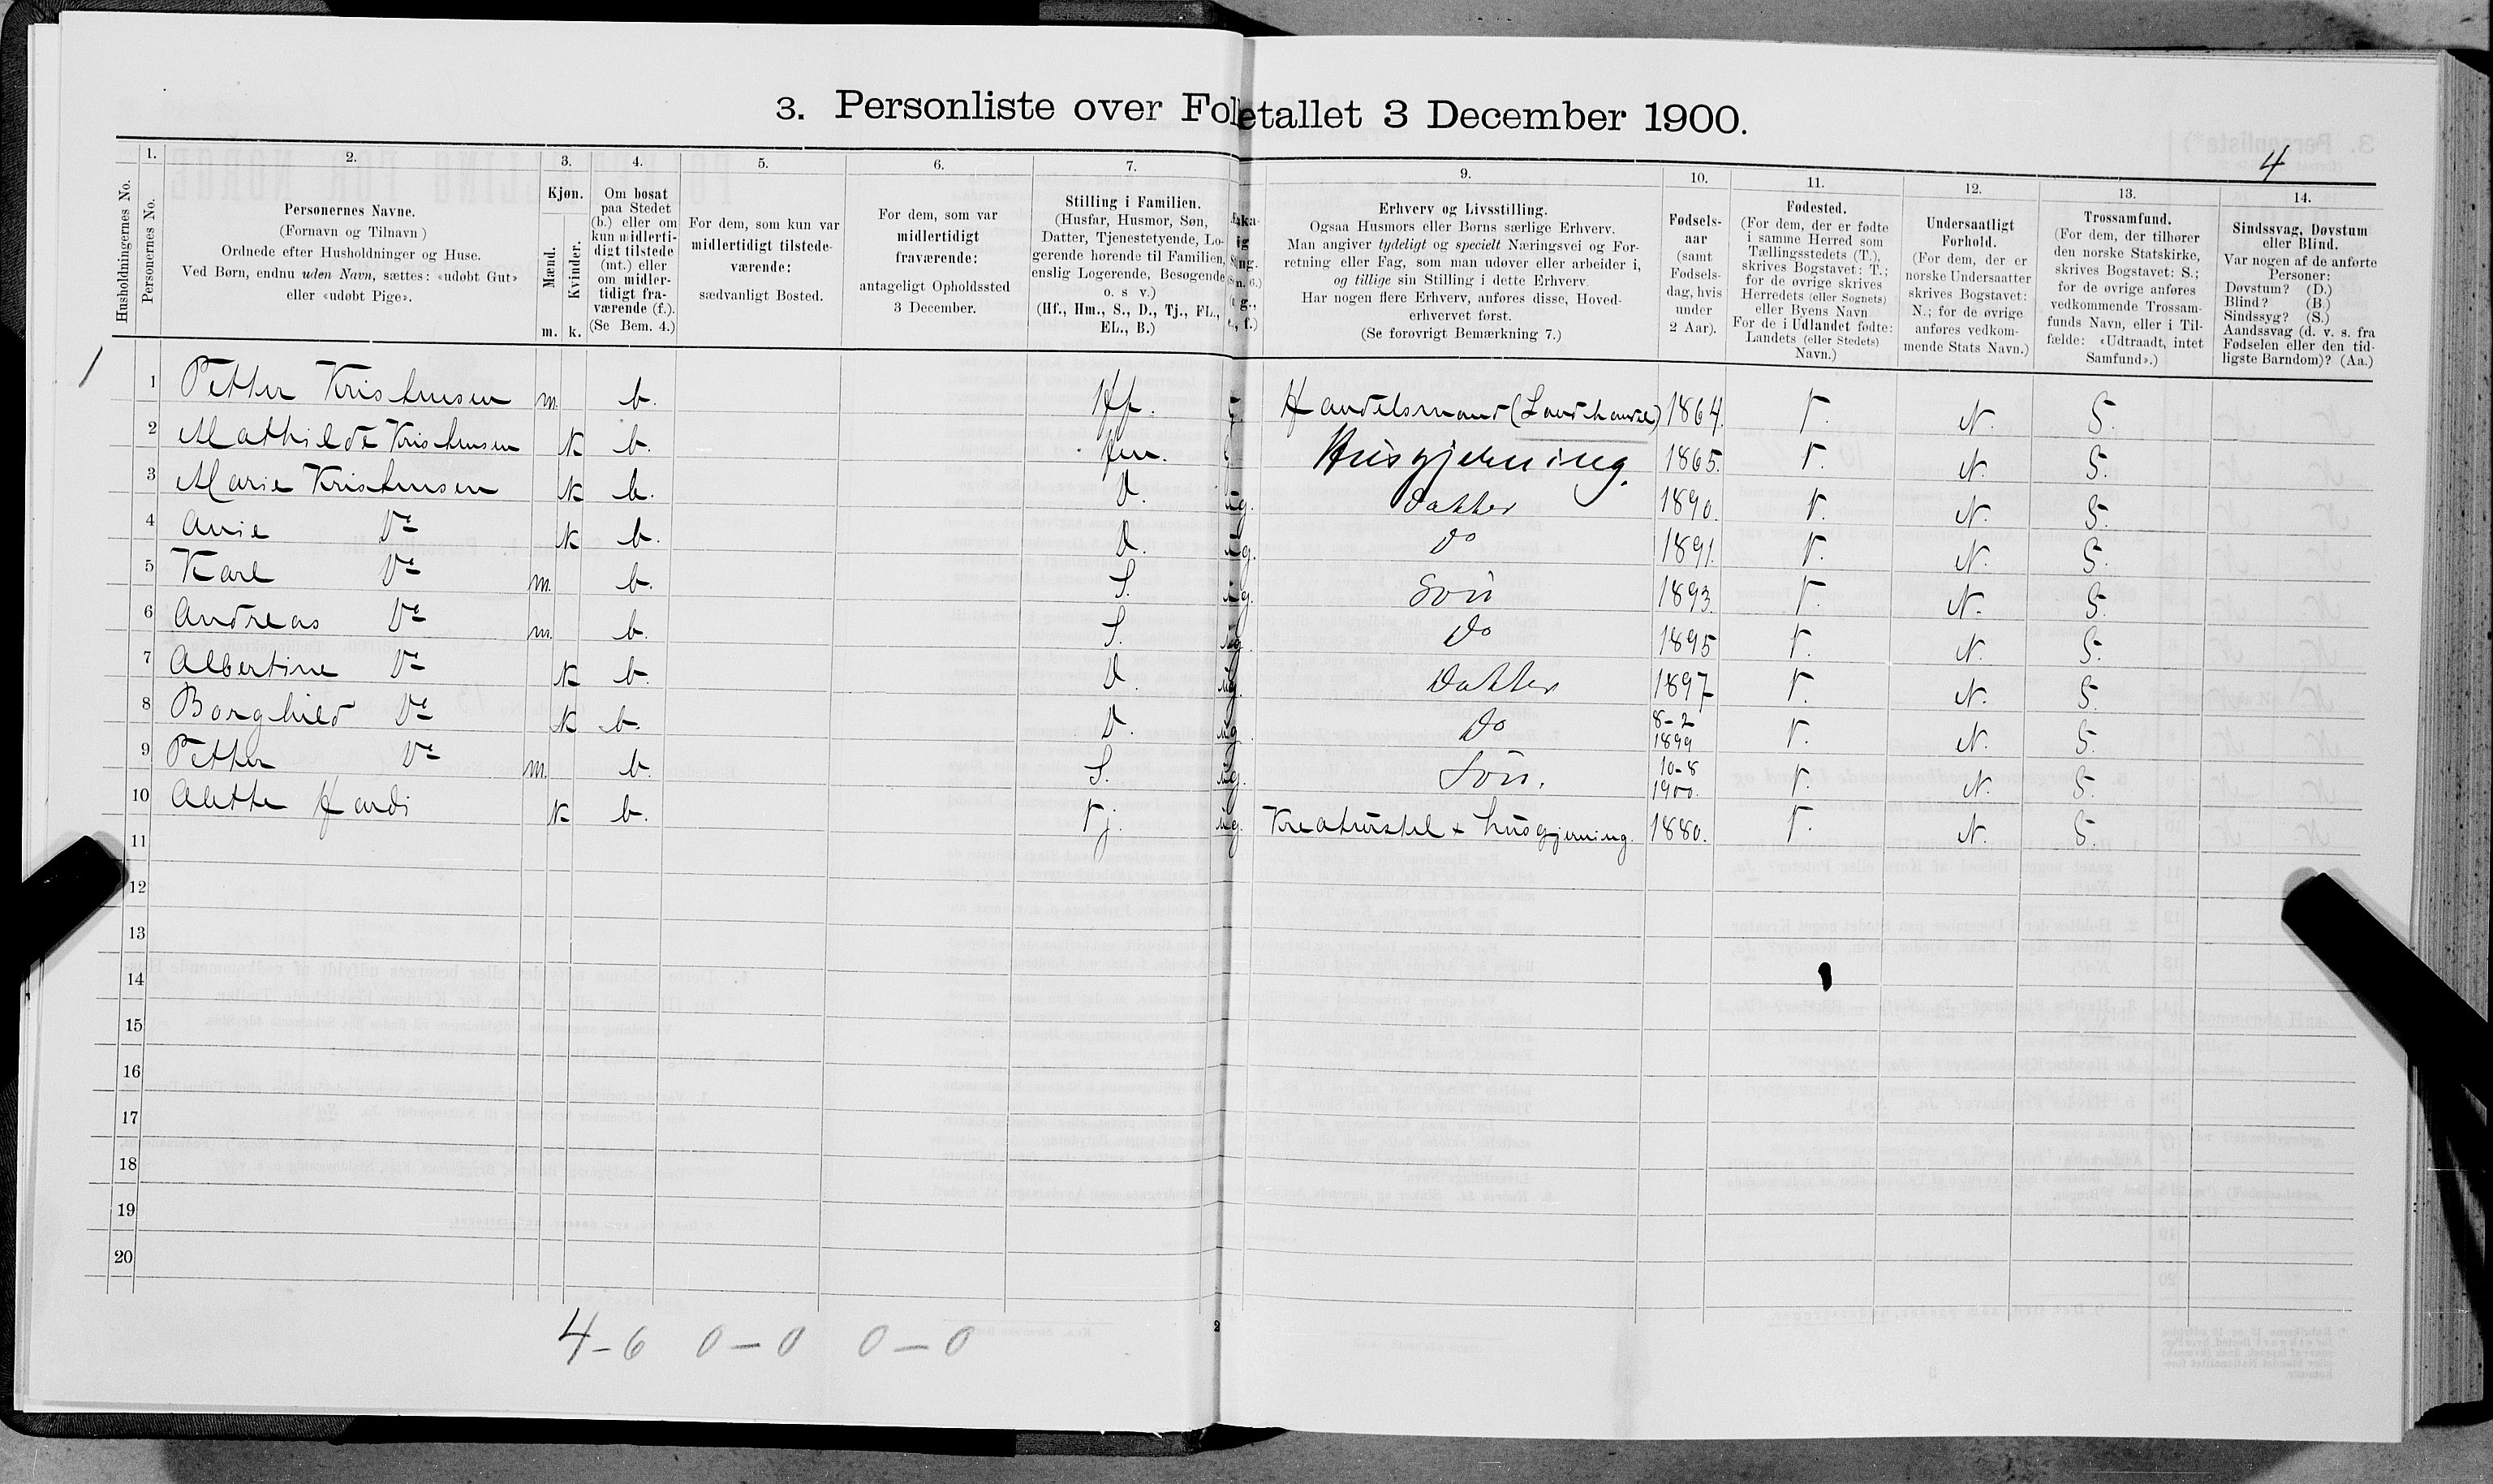 3. Personliste over Folketallet 3 December 1900.
4
1. 2. 3. 4. 5. 6. 7. 9. 10. 11. 12. 13. 14.
Husholdningernes No.
Personernes No.
Personernes Navne.
(Fornavn og Tilnavn)
Ordnede efter Husholdninger og Huse.
Ved Børn, endnu uden Navn, sættes: «udøbt Gut»
eller «udøbt Pige».
Kjøn.
Mænd.
Kvinder.
m. k.
Om bosat
paa Stedet
(b.) eller om
kun midlerti-
digt tilstede
(mt.) eller
om midler-
tidigt fra-
værende (f.).
(Se Bem. 4.)
For dem, som kun var
midlertidigt tilstede-
værende:
sædvanligt Bosted.
For dem, som var
midlertidigt
fraværende:
antageligt Opholdssted
3 December.
Stilling i Familien.
(Husfar, Husmor, Søn,
Datter, Tjenestetyende, Lo-
gerende hørende til Familien,
enslig Logerende, Besøgende
o. s v.)
(Hf., Hm., S., D., Tj., FL.,
EL., B.)
Erhverv og Livsstilling.
Ogsaa Husmors eller Børns særlige Erhverv.
Man angiver tydeligt og specielt Næringsvei og For-
retning eller Fag, som man udøver eller arbeider i,
og tillige sin Stilling i dette Erhverv.
Har nogen flere Erhverv, anføres disse, Hoved-
erhvervet først.
(Se forøvrigt Bemærkning 7.)
Fødsels-
aar
(samt
Fødsels-
dag, hvis
under
2 Aar).
Fødested.
(For dem, der er fødte
i samme Herred som
Tællingsstedets (T.),
skrives Bogstavet: T.;
for de øvrige skrives
Herredets (eller Sognets)
eller Byens Navn
For de i Udlandet fødte:
Landets (eller Stedets)
Navn.)
Undersaatligt
Forhold.
(For dem, der er
norske Undersaatter
skrives Bogstavet:
N.; for de øvrige
anføres vedkom-
mende Stats Navn.)
Trossamfund.
(For dem, der tilhører
den norske Statskirke,
skrives Bogstavet: S.;
for de øvrige anføres
vedkommende Trossam-
funds Navn, eller i Til-
fælde: «Udtraadt, intet
Samfund».)
Sindssvag, Døvstum
eller Blind.
Var nogen af de anførte
Personer:
Døvstum? (D.)
Blind? (B.)
Sindssyg? (S.)
Aandssvag (d. v. s. fra
Fødselen eller den tid-
ligste Barndom)? (Aa.)
1 1 Petter Kristensen m. b. Hf. Handelsmand (Landhandel) 1864. T. N. S.
2 Mathilde Kristensen k b. Hm. Husgjerning. 1865. T. N. S.
3 Marie Kristensen k b. D. ug. Datter 1890. T. N. S.
4 Anie Do k b. D. ug. Do 1891. T. N. S.
5 Karl Do m. b. S. ug. Søn 1893. T. N. S.
6 Andreas Do m. b. S. ug Do 1895 T. N. S.
7 Albertine Do k b. D. ug. Datter 1897 T. N. S.
8 Borghild Do k b. D. ug Do 8-2 1899 T. N. S.
9 Petter Do m. b. S. ug. Søn. 10-8 1900. T. N. S.
10 Alette Hardi k b. Tj. ug. Kreaturstel + husgjerning. 1880. T. N. S.
11
12
13
14
15
16
17
18
19
20
4-6 0-0 0-0